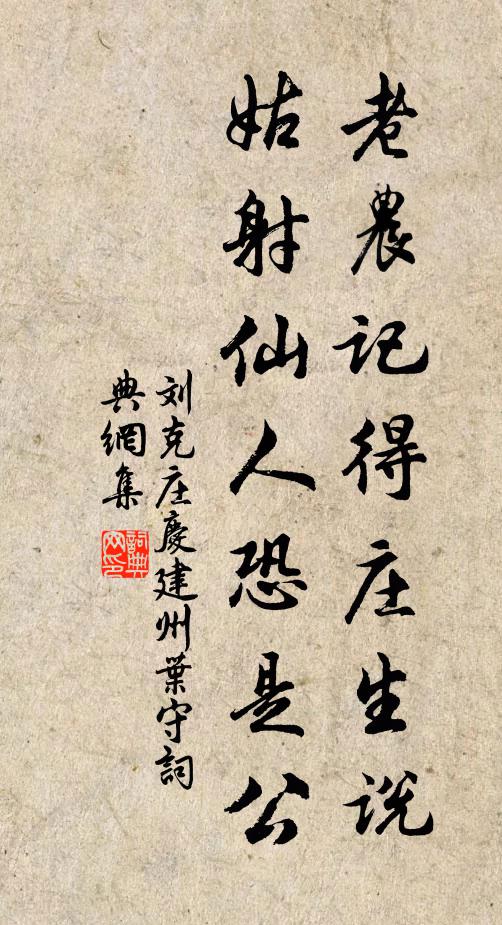 老農记得庄生说
姑射仙人恐是公
刘克庄慶建州葉守詞
典網集
詞典
网印